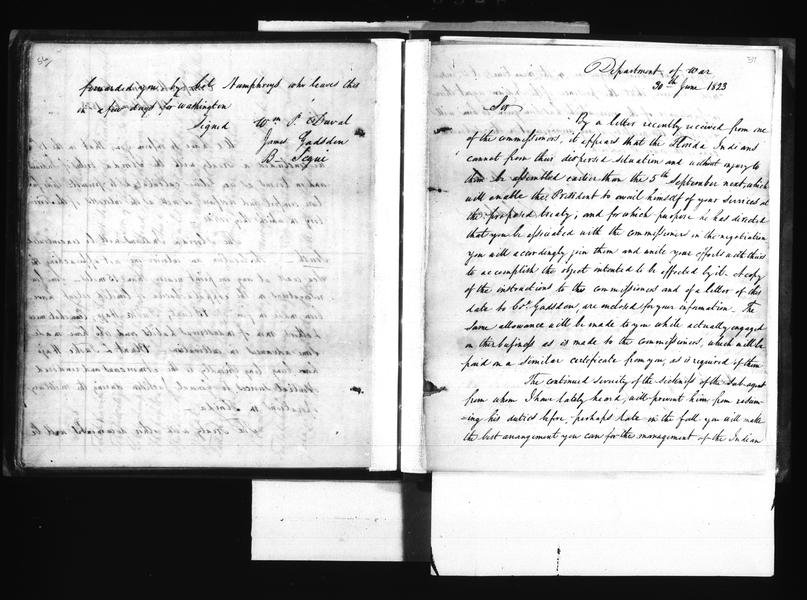 forwarded you by Col Humphreys who leaves this
in a few days for Washington
Signed Wm P. Duval
James Gadsden
B Segui
Department of War
30th June 1823
Sir
By a letter recently received from one
of the commissioners, it appears that the Florida Indians
cannot from their dispersed situation and without injury to
them be assembled earlier than the 5th September next, which
will enable the President to avail himself of your services at
the proposed treaty; and for which purpose he has directed
that you be associated with the commissioners in the negotiation
you will accordingly join them and unite your efforts with theirs
to accomplish the object intended to be effected by it. A copy
of the instructions to the commissioners and of a letter of this
date to Col. Gadsden, are enclosed for your information. The
same allowance will be made to you while actually engaged
on this business as is made to the commissioners, which will be
paid on a similar certificate from you, as is required of them
The continued severity of the sickness of the Sub agent
from whom I have lately heard, will prevent him from resum-
ing his duties before, perhaps late in the fall you will make
the best arrangement you can for the management of the Indian